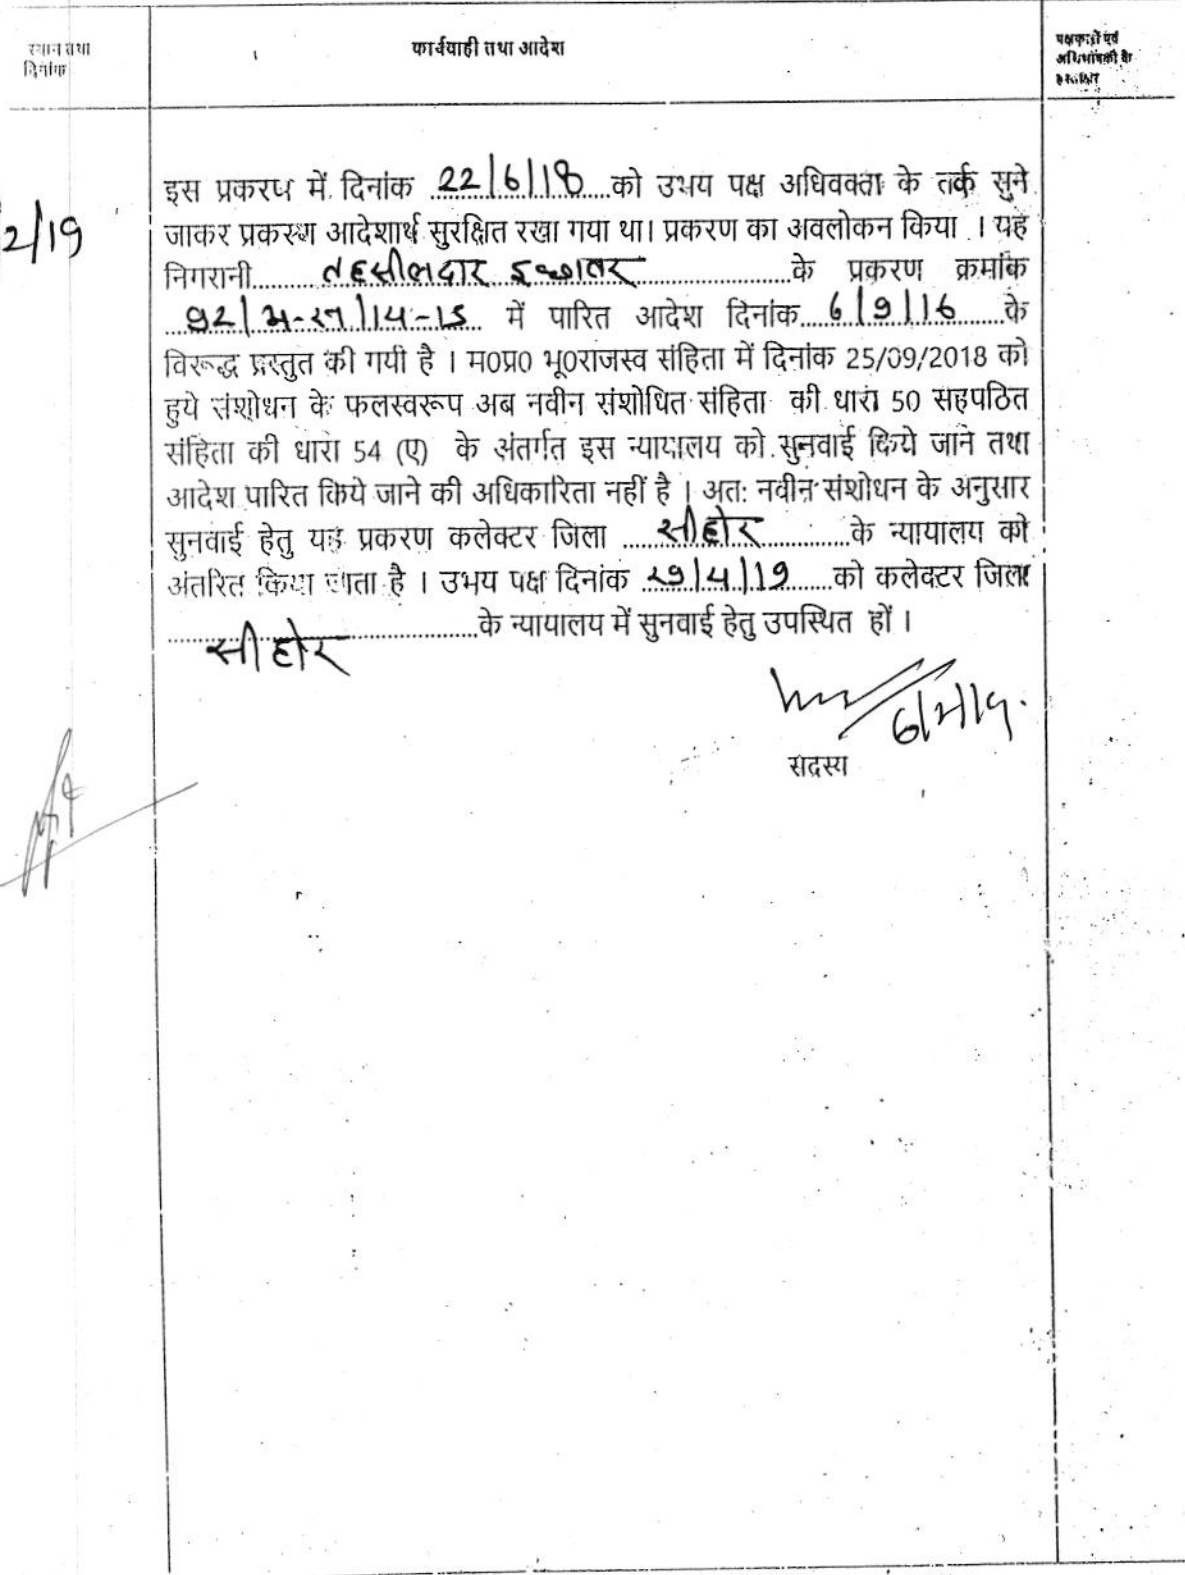 स्थान तथा
दिनांक
कार्यवाही तथा आदेश
पक्षकारों एवं
अभिभाषकों के
हस्ताक्षर
2/19
इस प्रकरण में दिनांक 22/6/18 को उभय पक्ष अधिवक्ता के तर्क सुने
जाकर प्रकरण आदेशार्थ सुरक्षित रखा गया था। प्रकरण का अवलोकन किया । यह
निगरानी तहसीलदार इछावर के प्रकरण क्रमांक
92/अ-27/14-15 में पारित आदेश दिनांक 6/9/16 के
विरूद्ध प्रस्तुत की गयी है । म0प्र0 भू0राजस्व संहिता में दिनांक 25/09/2018 को
हुये संशोधन के फलस्वरूप अब नवीन संशोधित संहिता की धारा 50 सहपठित
संहिता की धारा 54 (ए) के अंतर्गत इस न्यायालय को सुनवाई किये जाने तथा
आदेश पारित किये जाने की अधिकारिता नहीं है । अतः नवीन संशोधन के अनुसार
सुनवाई हेतु यह प्रकरण कलेक्टर जिला सीहोर के न्यायालय को
अंतरित किया जाता है । उभय पक्ष दिनांक 29/4/19 को कलेक्टर जिला
सीहोर के न्यायालय में सुनवाई हेतु उपस्थित हों ।
सदस्य